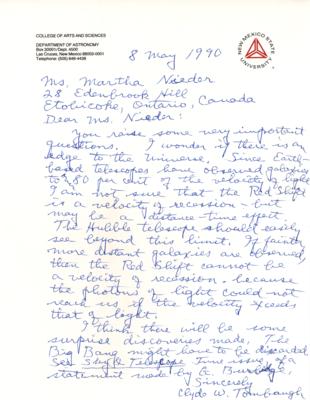 COLLEGE OF ARTS AND SCIENCES
DEPARTMENT OF ASTRONOMY
Box 30001/Dept. 4500
Las Cruces, New Mexico 88003-0001
Telephone: (505) 646-4438
NEW MEXICO STATE UNIVERSITY
8 May 1990
Ms. Martha Nieder
28 Edenbrook Hill
Etobicoke, Ontario, Canada
Dear Ms. Nieder:
You raise some very important
questions. I wonder if there is an
edge to the Universe. Since Earth-
based telescopes have observed galaxies
to 80 per cent of the velocity of light,
I am not sure that the Red Shift
is a velocity of recession - but
may be a distance-time effect.
The Hubble telescope should easily
see beyond this limit. If fainter
more distant galaxies are observed,
then the Red Shift cannot be
a velocity of recession. because
the photons of light could not
reach us if the velocity exceeds
that of light.
I think there will be some
surprise discoveries made, The
Big Bang might have to be discarded.
See Sky & Telescope June issue, of a
statement made by G. Burbidge.
Sincerely
Clyde W. Tombaugh